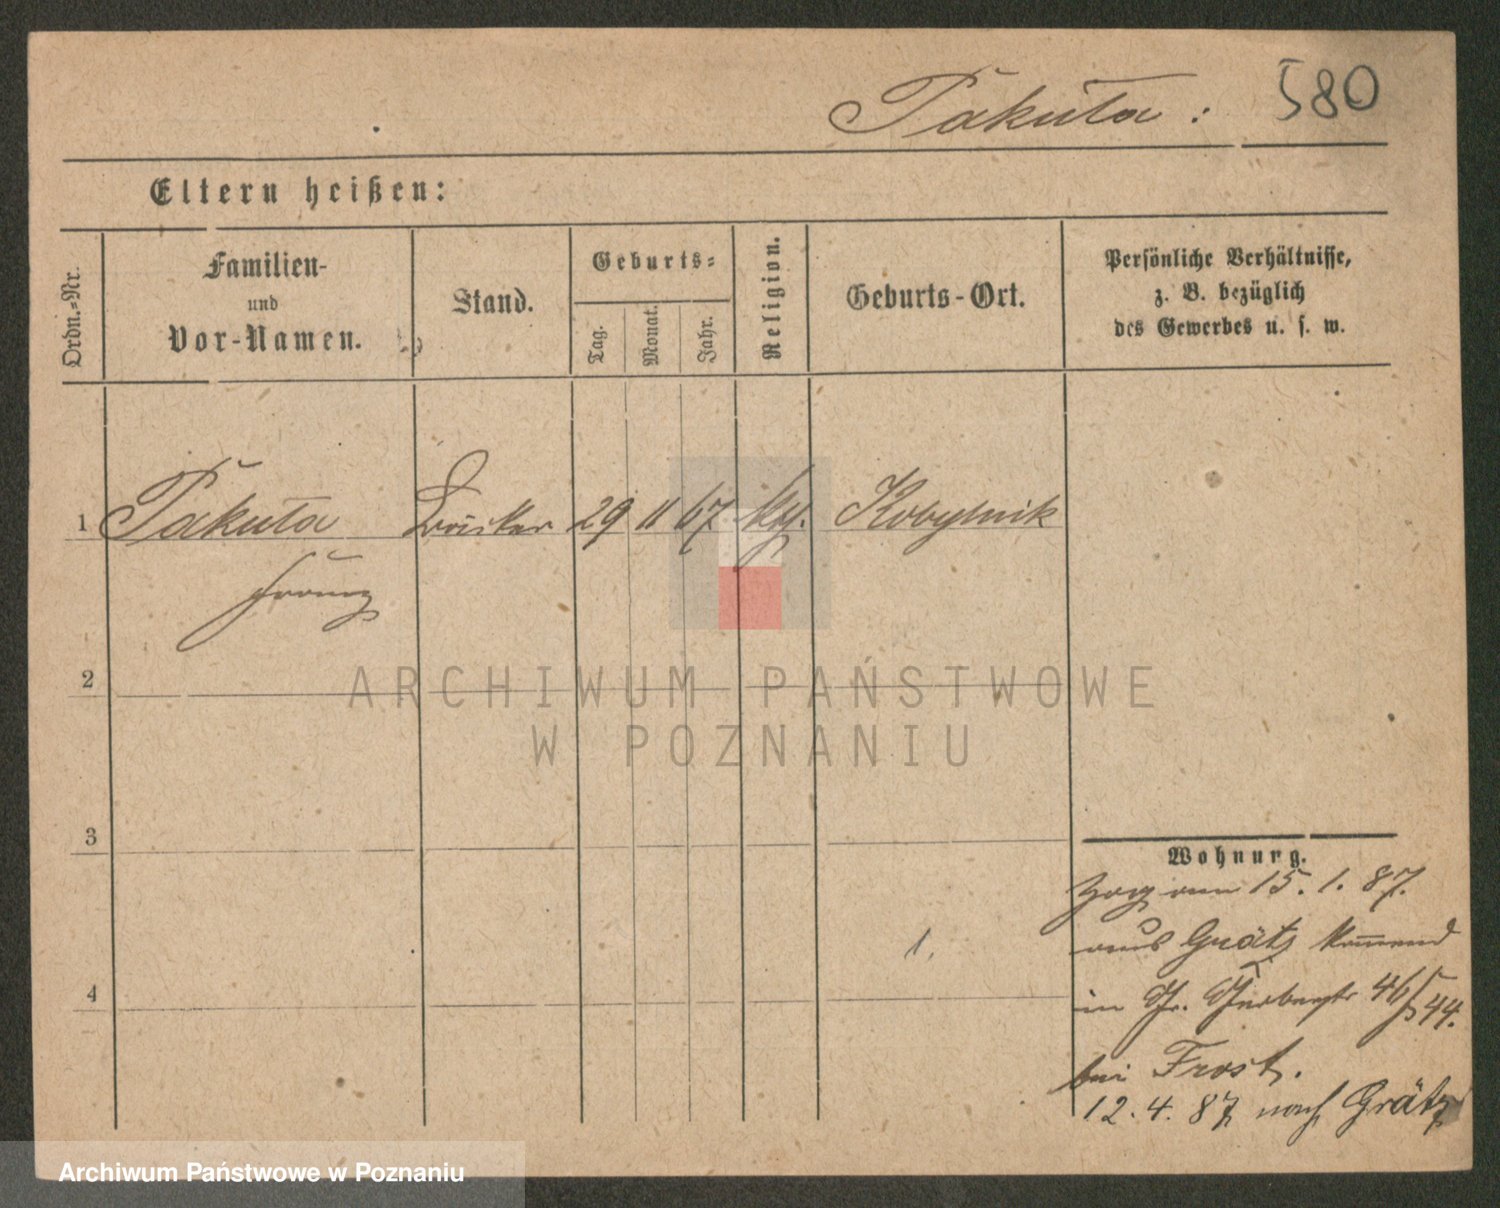 Pakuta: 580
Eltern heißen:
Ordn.-Nr.
Familien-
und
Vor-Namen.
Stand.
Geburts-
Tag.
Monat.
Jahr.
Religion.
Geburts-Ort.
Persönliche Verhältnisse,
z. B. bezüglich
des Gewerbes u. s. w.
1 Pakuta 29 11 67 Kobylnik
Franz
2
ARCHIWUM PAŃSTWOWE
W POZNANIU
3
Wohnung.
Zog am 15.1.87.
aus Grätz kommend
1.
4
in Gr. Gerberstr 46/44.
bei Frost.
12.4.87 nach Grätz
Archiwum Państwowe w Poznaniu